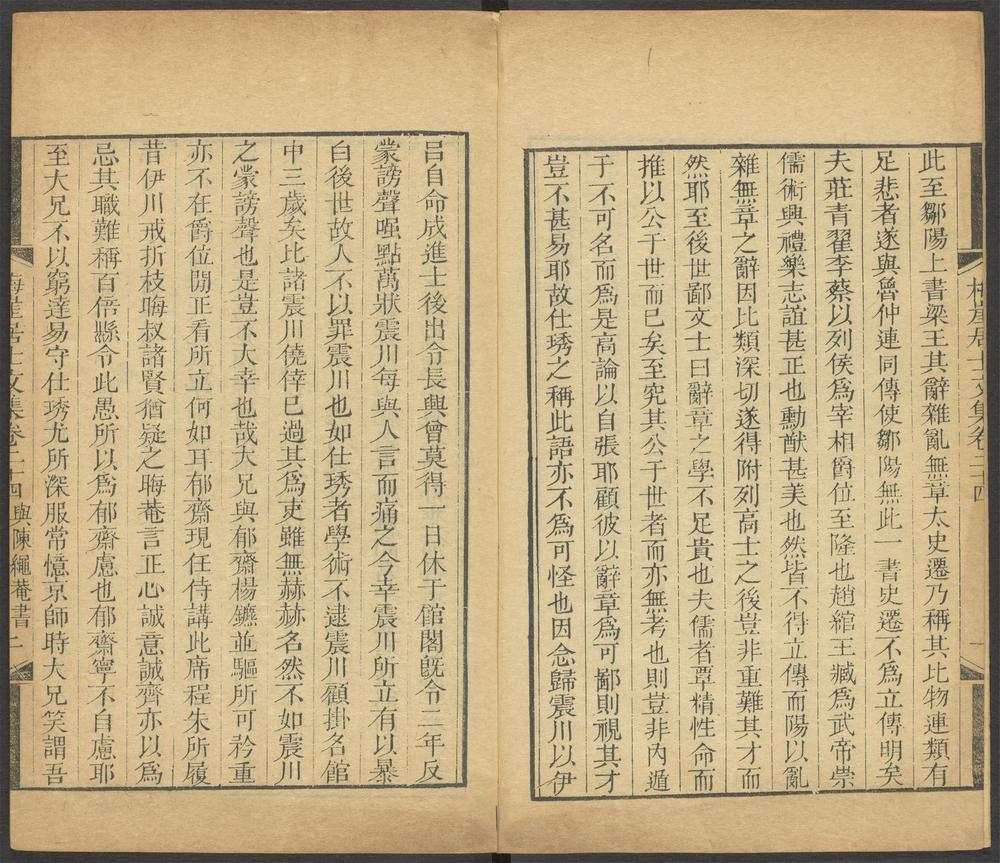 此至鄒陽上書梁王其辭雜亂無章太史遷乃稱其比物連類有
足悲者遂與魯仲連同傳使鄒陽無此一書史遷不為立傳明矣
夫莊青翟李蔡以列侯為宰相爵位至隆也趙綰王臧為武帝崇
儒術興禮樂志誼甚正也勳猷甚美也然皆不得立傳而陽以亂
雜無章之辭因比類深切遂得附列高士之後豈非重難其才而
然耶至後世鄙文士曰辭章之學不足貴也夫儒者覃精性命而
推以公于世而已矣至究其公于世者而亦無考也則豈非內遁
于不可名而為是高論以自張耶顧彼以辭章為可鄙則視其才
豈不甚易耶故仕琇之稱此語亦不為可怪也因念歸震川以伊
呂自命成進士後出令長興曾莫得一日休于館閣既令二年反
蒙謗聲嘔點萬狀震川每與人言而痛之今幸震川所立有以暴
白後世故人不以罪震川也如仕琇者學術不逮震川顧掛名館
中三歲矣比諸震川僥倖已過其為吏雖無赫赫名然不如震川
之蒙謗聲也是豈不大幸也哉大兄與郁齋楊鑣並驅所可矜重
亦不在爵位閒正看所立何如耳郁齋現任侍講此席程朱所履
昔伊川戒折枝晦叔諸賢猶疑之晦菴言正心誠意誠齊亦以為
忌其職難稱百倍縣令此愚所以為郁齋慮也郁齋寧不自慮耶
至大兄不以窮達易守仕琇尤所深服常憶京師時大兄笑謂吾
梅崖居士文集卷二十四 與陳繩菴書 二